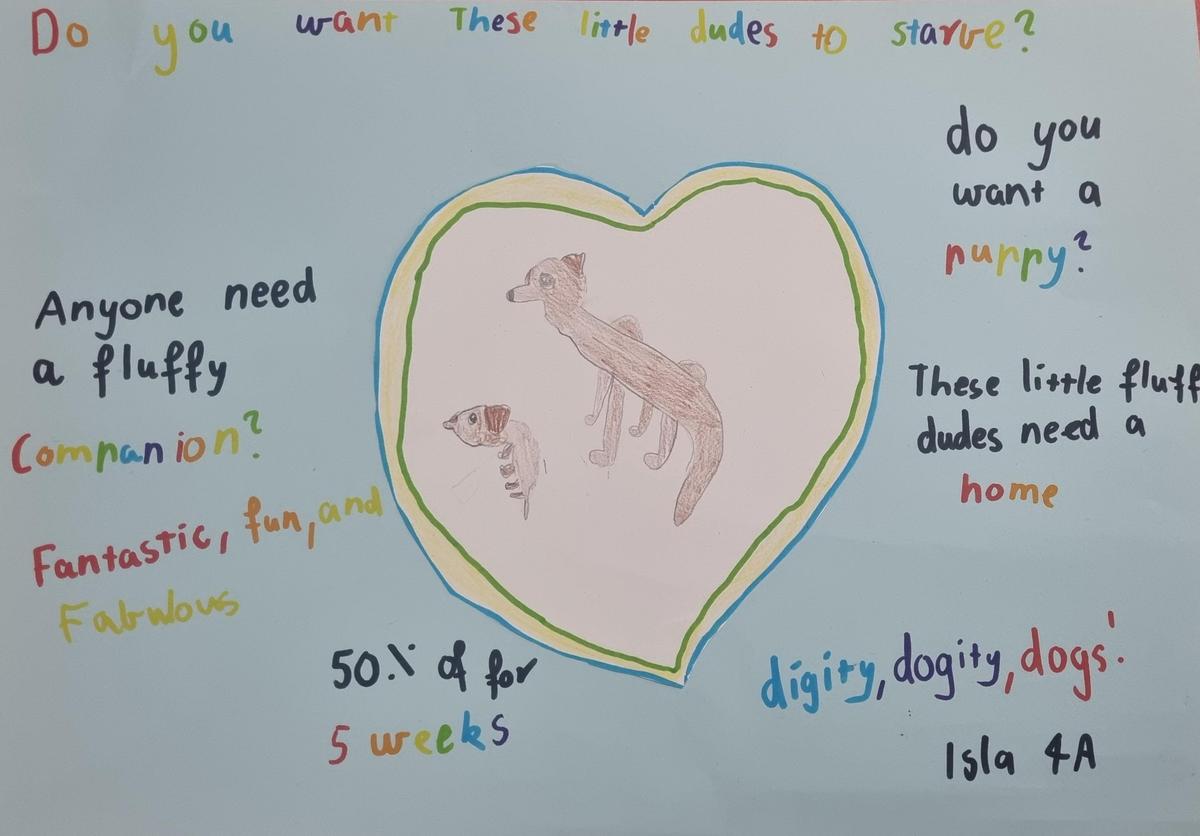 Do you want These little dudes to starve?
do you
want a
puppy?
Anyone need
a fluffy
Companion?
These little fluff
dudes need a
home
Fantastic, fun, and
Fabulous
50% of for
5 weeks
digity, dogity, dogs!
Isla 4A